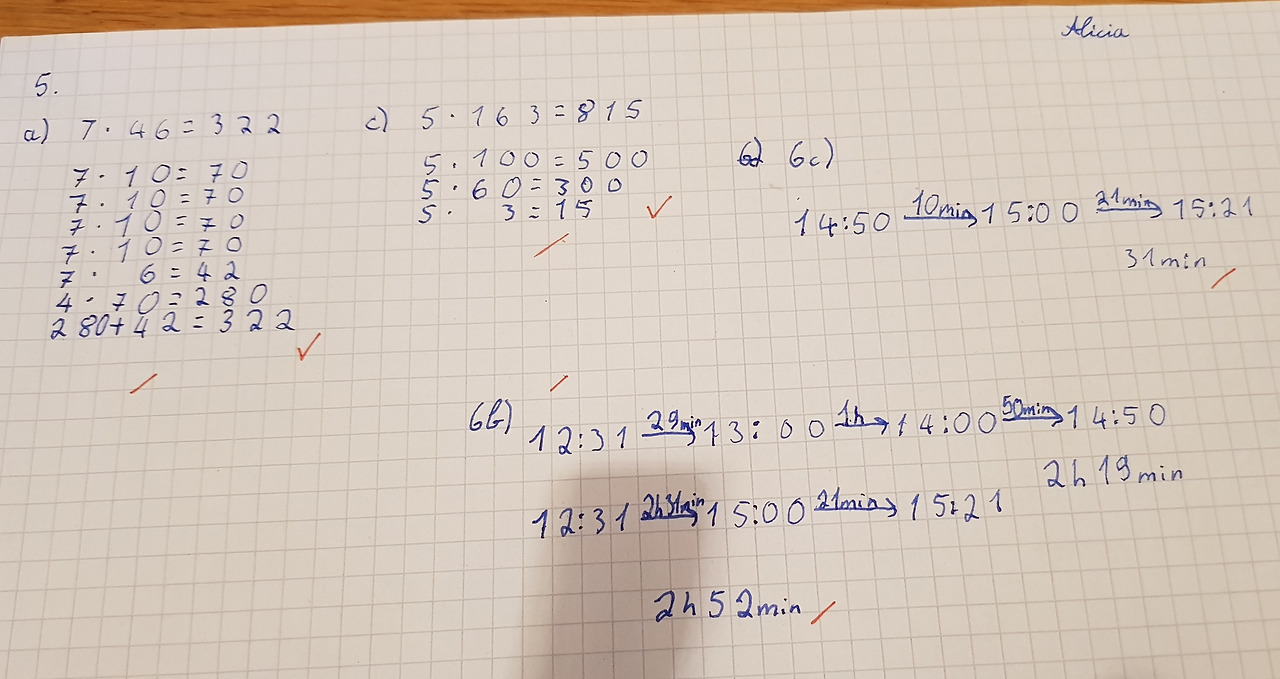 Alicia
5.
a) 7 · 46 = 322
7 · 10 = 70
7 · 10 = 70
7 · 10 = 70
7 · 10 = 70
7 · 6 = 42
4 · 70 = 280
280 + 42 = 322
c) 5 · 163 = 815
5 · 100 = 500
5 · 60 = 300
5 · 3 = 15
6c)
14:50 10min 15:00 21min 15:21
31min
6b) 12:31 29min 13:00 1h 14:00 50min 14:50
2h 19min
12:31 2h31min 15:00 21min 15:21
2h 52min